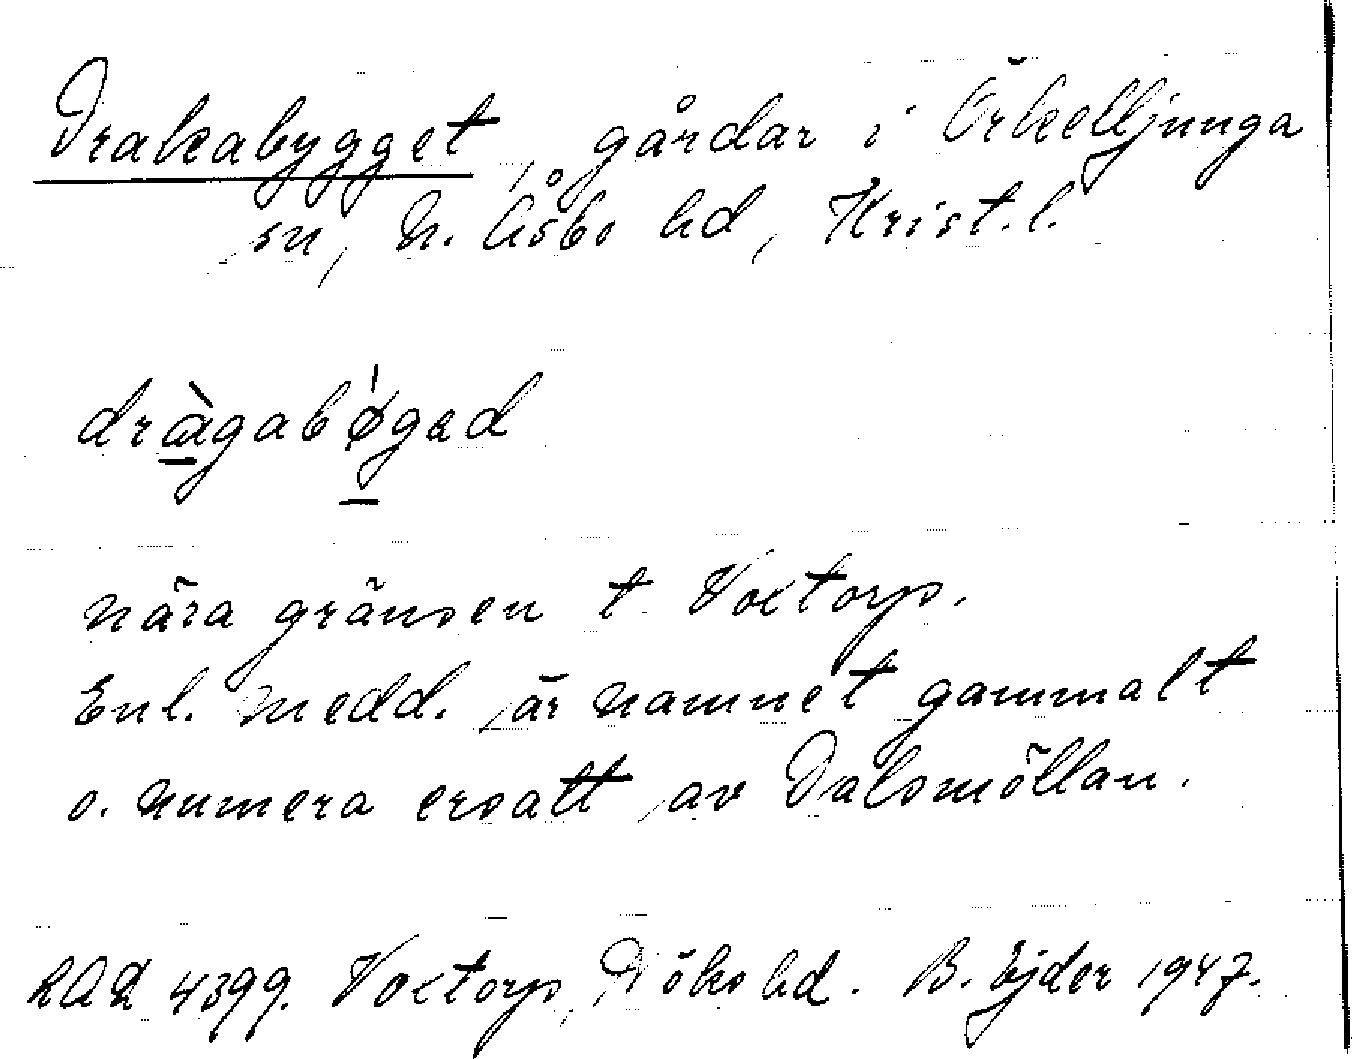 Drakabygget, gårdar i Örkelljunga
sn, N. Åsbo hd, Krist. l.
dràgabǿgad
nära gränsen t Voxtorp.
Enl. medd. är namnet gammalt
o. numera ersatt av Dalsmöllan.
LAL 4399. Voxtorp, Höks hd. B. Ejder 1947.